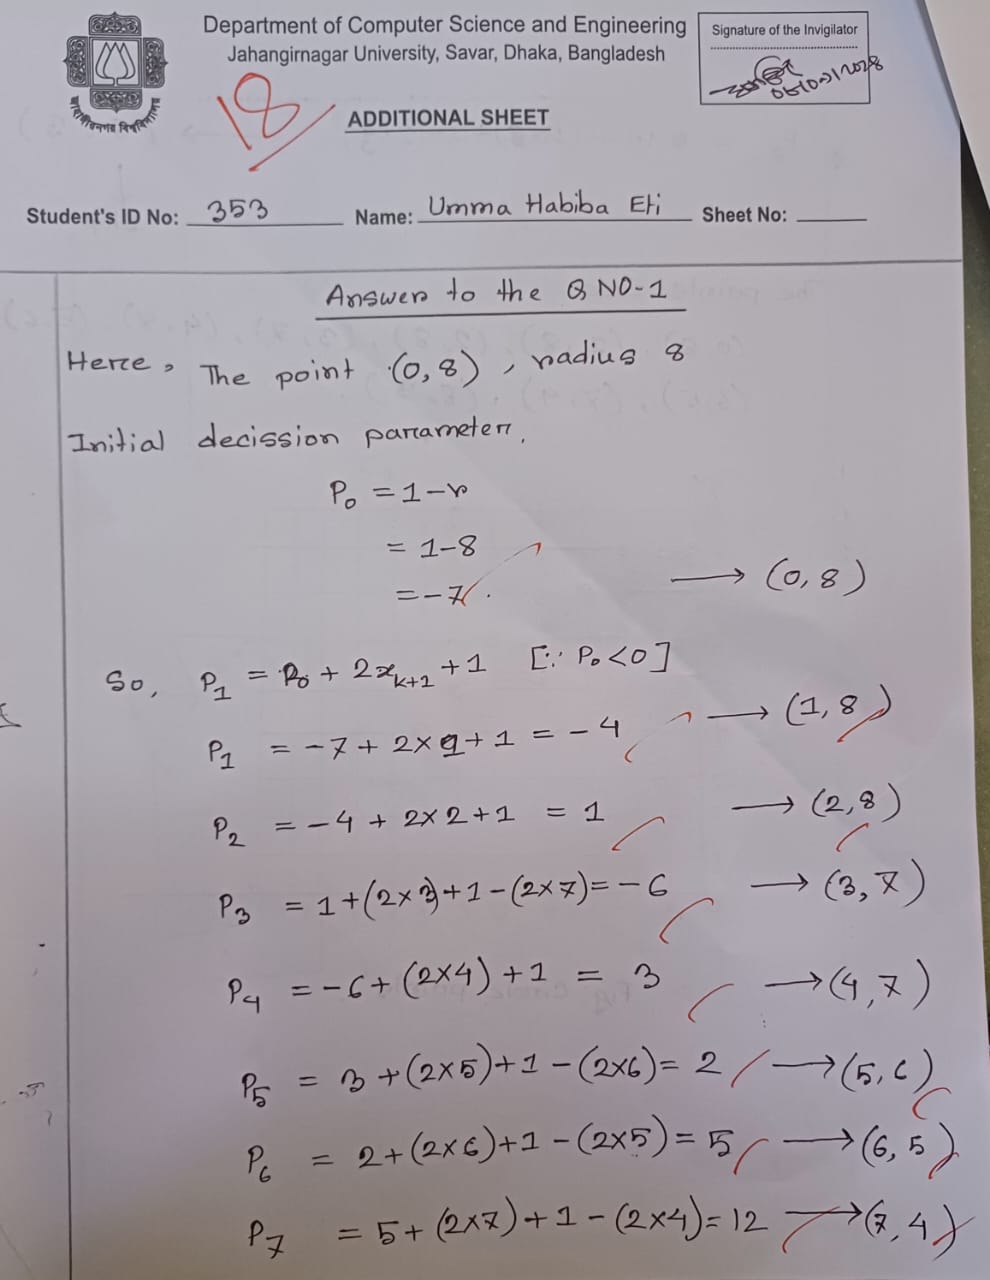 Department of Computer Science and Engineering
Jahangirnagar University, Savar, Dhaka, Bangladesh
Signature of the Invigilator
18
ADDITIONAL SHEET
Student's ID No: 353 Name: Umma Habiba Eti Sheet No:
Answer to the Q NO-1
Here, The point (0,8), radius 8
Initial decission parameter,
P₀ = 1-r
= 1-8
= -7. → (0,8)
So, P₁ = P₀ + 2xₖ₊₁ + 1 [∵ P₀<0]
P₁ = -7 + 2×1 + 1 = -4 → (1,8)
P₂ = -4 + 2×2+1 = 1 → (2,8)
P₃ = 1+(2×3)+1-(2×7)= -6 → (3,7)
P₄ = -6+(2×4)+1 = 3 → (4,7)
P₅ = 3+(2×5)+1-(2×6)= 2 → (5,6)
P₆ = 2+(2×6)+1-(2×5)=5 → (6,5)
P₇ = 5+(2×7)+1-(2×4)=12 → (7,4)